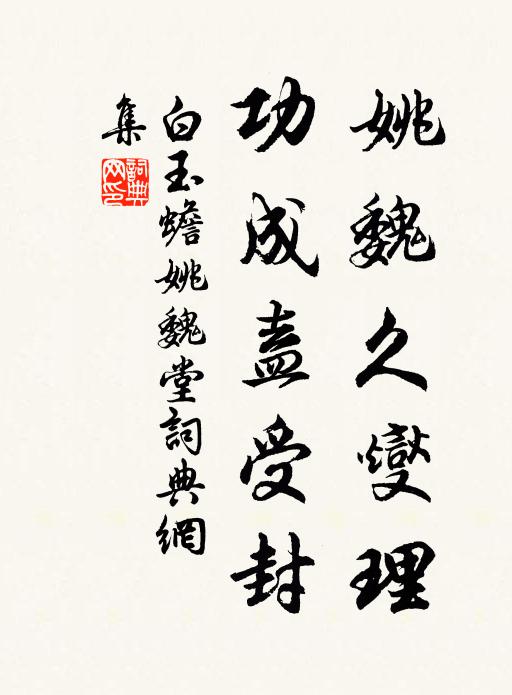 姚魏久燮理
功成盍受封
白玉蟾姚魏堂詞典網
集
詞典網印